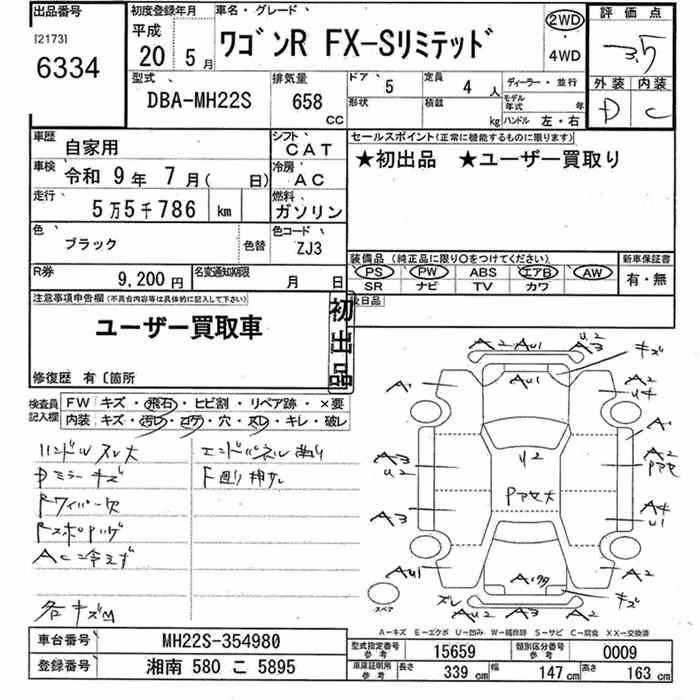 出品番号
[2173]
6334
初度登録年月
平成
20 5月
車名・グレード
ワゴンR FX-Sリミテッド
2WD
・
4WD
評価点
3.5
外装 内装
D C
型式
DBA-MH22S
排気量
658
CC
ドア 5
定員 4 人
ディーラー・並行
形状
積載 kg
モデル年式 年
ハンドル 左・右
車歴 自家用
シフト CAT
車検 令和 9年 7月( 日)
冷房 AC
走行 5万5千786 km
燃料 ガソリン
色 ブラック 色替
色コード ZJ3
R券 9,200円
名変通知期限 月 日
セールスポイント(正常に機能するものに限ります)
★初出品 ★ユーザー買取り
装備品(純正品に限り○をつけてください)
PS PW ABS エアB AW
SR ナビ TV カワ
新車保証書
有・無
後日品
注意事項申告欄(不具合内容等は具体的に記入して下さい)
ユーザー買取車
初出品
修復歴 有〔箇所
検査員記入欄
FW キズ・飛石・ヒビ割・リペア跡・×要
内装 キズ・汚レ・コゲ・穴・スレ・キレ・破レ
ハンドルスレ大
Dミラーキズ
Rワイパー欠
AC冷えず
各キズM
エンドパネル曲り
F廻り押サレ
A2 AU1
U2
A3
キズ
A1
AU1
A2
U4
A1
A3
U2
U2
A2
Pアセ大
A3
A4
U1
AU1
A2
キズ
ズレ
A2
U2
A3
A2
スペア
A-キズ E-エクボ U-凹み W-補修跡 S-サビ C-腐食 XX-交換済
車台番号 MH22S-354980
登録番号 湘南 580 こ 5895
型式指定番号 参考 15659
類別区分番号 参考 0009
車庫証明用 参考 長さ 339 cm 幅 147 cm 高さ 163 cm